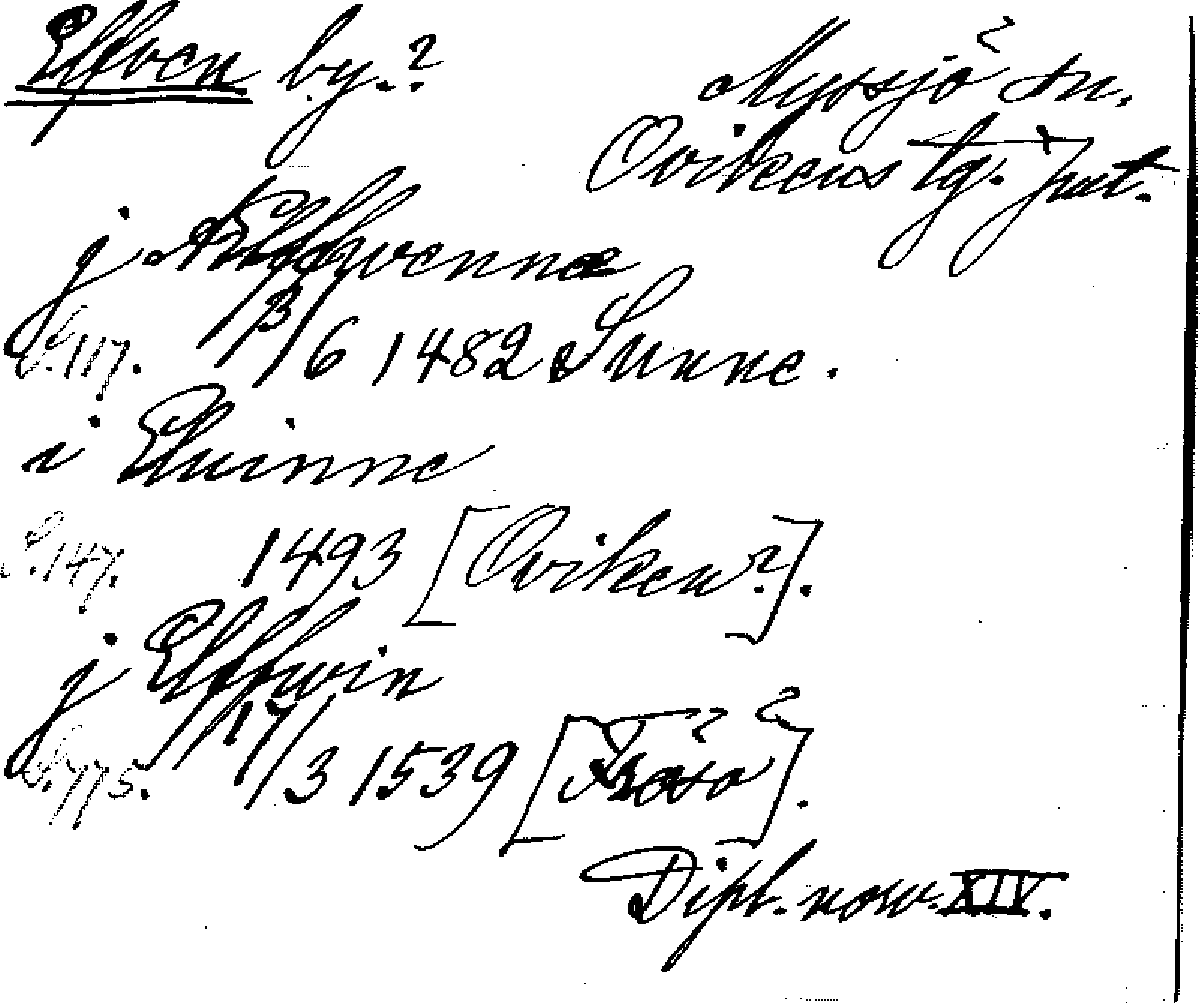 Elfven by.? Myssjö sn.
Ovikens tg. Jmt.
j Ælffwennæ
S.117. 13/6 1482 Sunne.
i Eluinne
S.147. 1493 [Oviken?].
j Elffwin
S.775. 17/3 1539 [Frösö].
Dipl. norv. XIV.